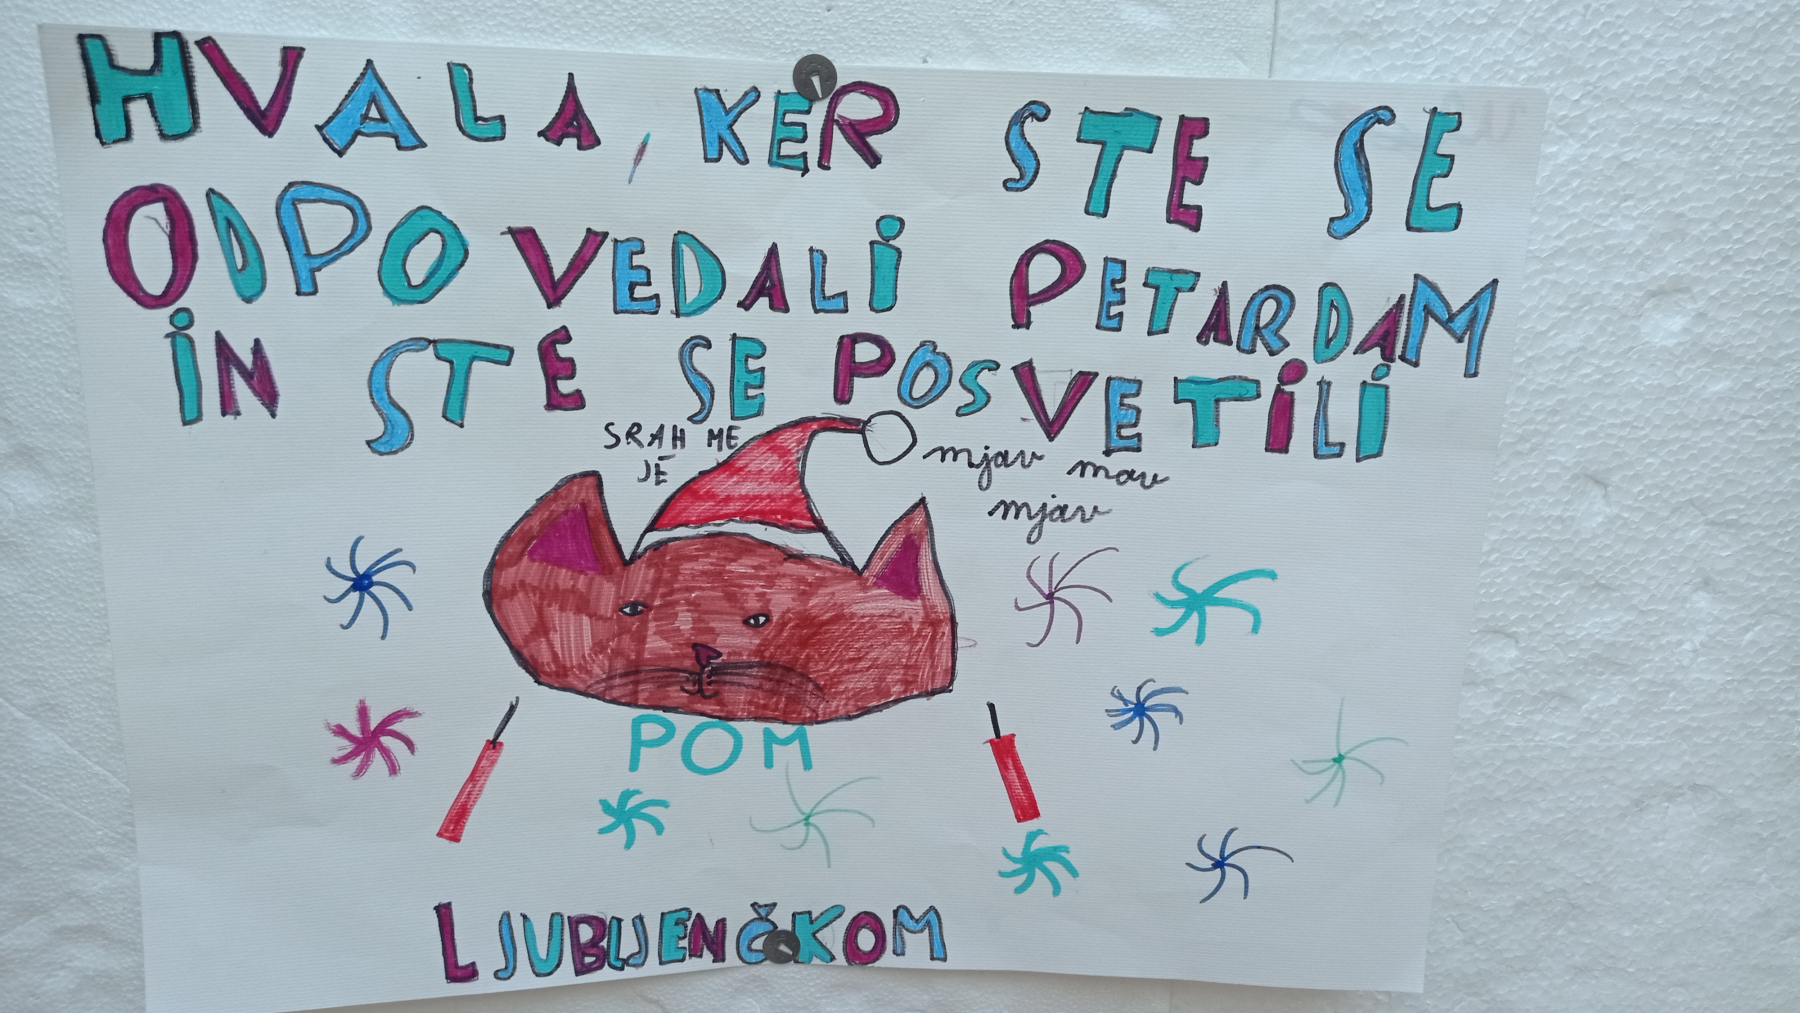 HVALA, KER STE SE
ODPOVEDALI PETARDAM
IN STE SE POSVETILI
SRAH ME
JE
mjav mav
mjav
POM
LJUBLJENČKOM